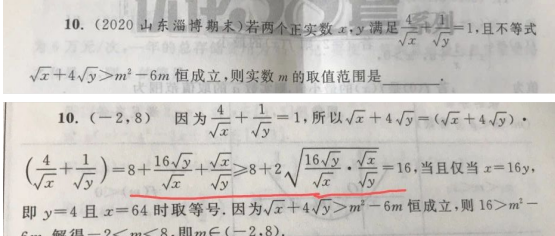 10. (2020 山东淄博期末)若两个正实数 x,y 满足 4/√x + 1/√y = 1,且不等式
√x+4√y>m²-6m 恒成立,则实数 m 的取值范围是______.
10. (-2,8) 因为 4/√x + 1/√y = 1,所以 √x+4√y=(√x+4√y)·
(4/√x + 1/√y)=8+16√y/√x+√x/√y≥8+2√(16√y/√x · √x/√y)=16,当且仅当 x=16y,
即 y=4 且 x=64 时取等号.因为√x+4√y>m²-6m 恒成立,则 16>m²-
6m,解得-2<m<8,即m∈(-2,8).